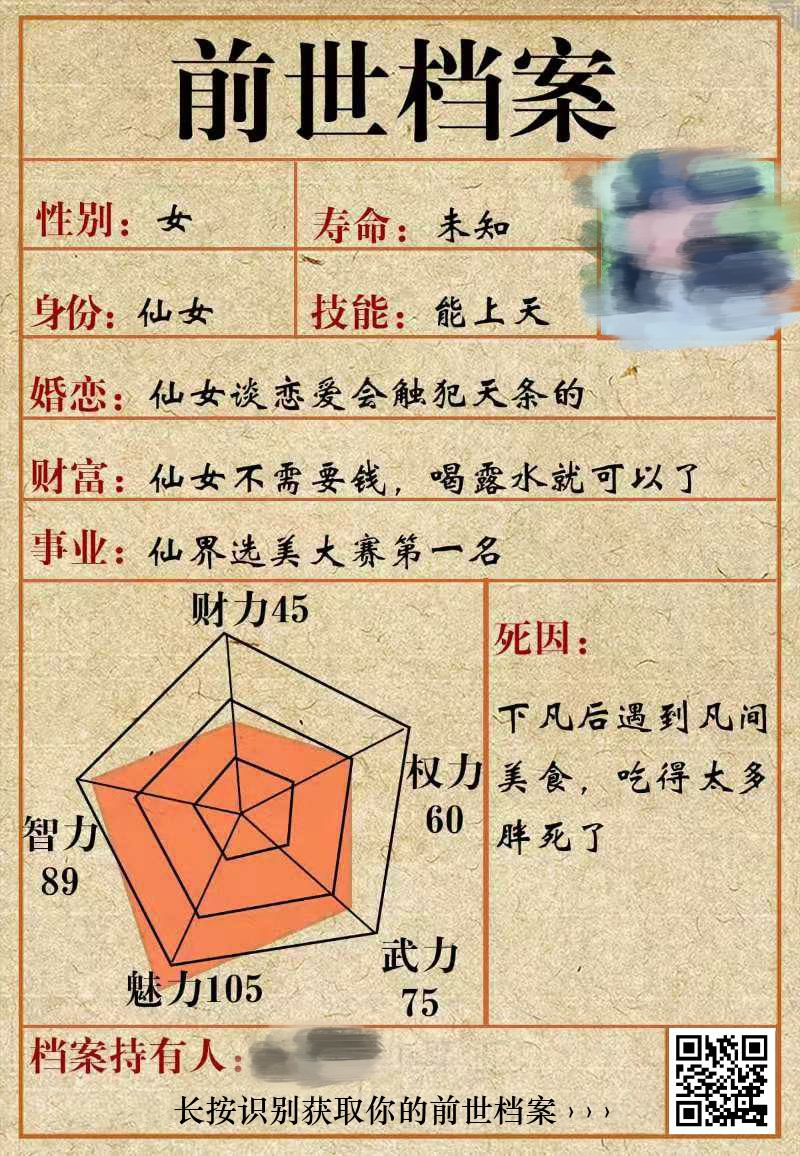 前世档案
性别：女
寿命：未知
身份：仙女
技能：能上天
婚恋：仙女谈恋爱会触犯天条的
财富：仙女不需要钱，喝露水就可以了
事业：仙界选美大赛第一名
财力45
权力
60
智力
89
武力
75
魅力105
死因：
下凡后遇到凡间
美食，吃得太多
胖死了
档案持有人：
长按识别获取你的前世档案›››